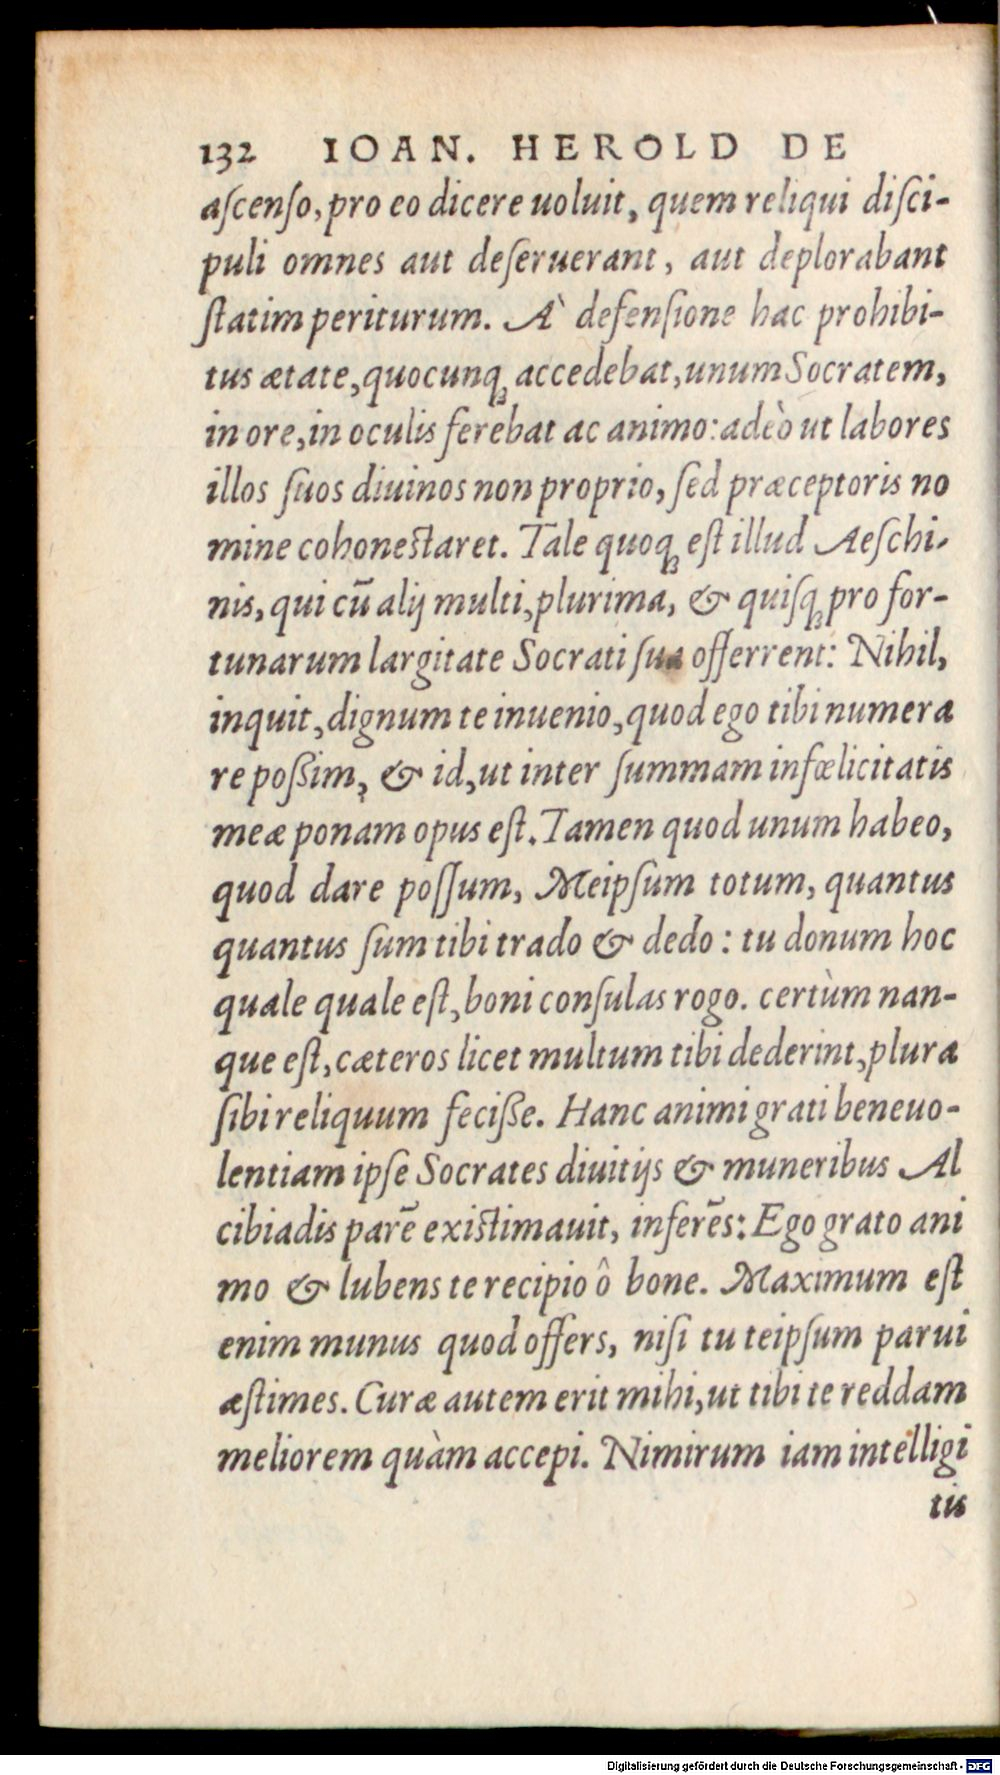 132 IOAN. HEROLD DE
aſcenſo, pro eo dicere uoluit, quem reliqui diſci-
puli omnes aut deſeruerant, aut deplorabant
ſtatim periturum. À defenſione hac prohibi-
tus ætate, quocunq; accedebat, unum Socratem,
in ore, in oculis ferebat ac animo: adeò ut labores
illos ſuos diuinos non proprio, ſed præceptoris no
mine cohoneſtaret. Tale quoq; eſt illud Aeſchi-
nis, qui cū alij multi, plurima, & quiſq; pro for-
tunarum largitate Socrati ſua offerrent: Nihil,
inquit, dignum te inuenio, quod ego tibi numera
re poßim, & id, ut inter ſummam infœlicitatis
meæ ponam opus eſt. Tamen quod unum habeo,
quod dare poſſum, Meipſum totum, quantus
quantus ſum tibi trado & dedo: tu donum hoc
quale quale eſt, boni conſulas rogo. certùm nan-
que eſt, cæteros licet multum tibi dederint, plura
ſibi reliquum feciße. Hanc animi grati beneuo-
lentiam ipſe Socrates diuitijs & muneribus Al
cibiadis parē exiſtimauit, inferēs: Ego grato ani
mo & lubens te recipio ô bone. Maximum eſt
enim munus quod offers, niſi tu teipſum parui
æſtimes. Curæ autem erit mihi, ut tibi te reddam
meliorem quàm accepi. Nimirum iam intelligi
tis
Digitalisierung gefördert durch die Deutsche Forschungsgemeinschaft - DFG